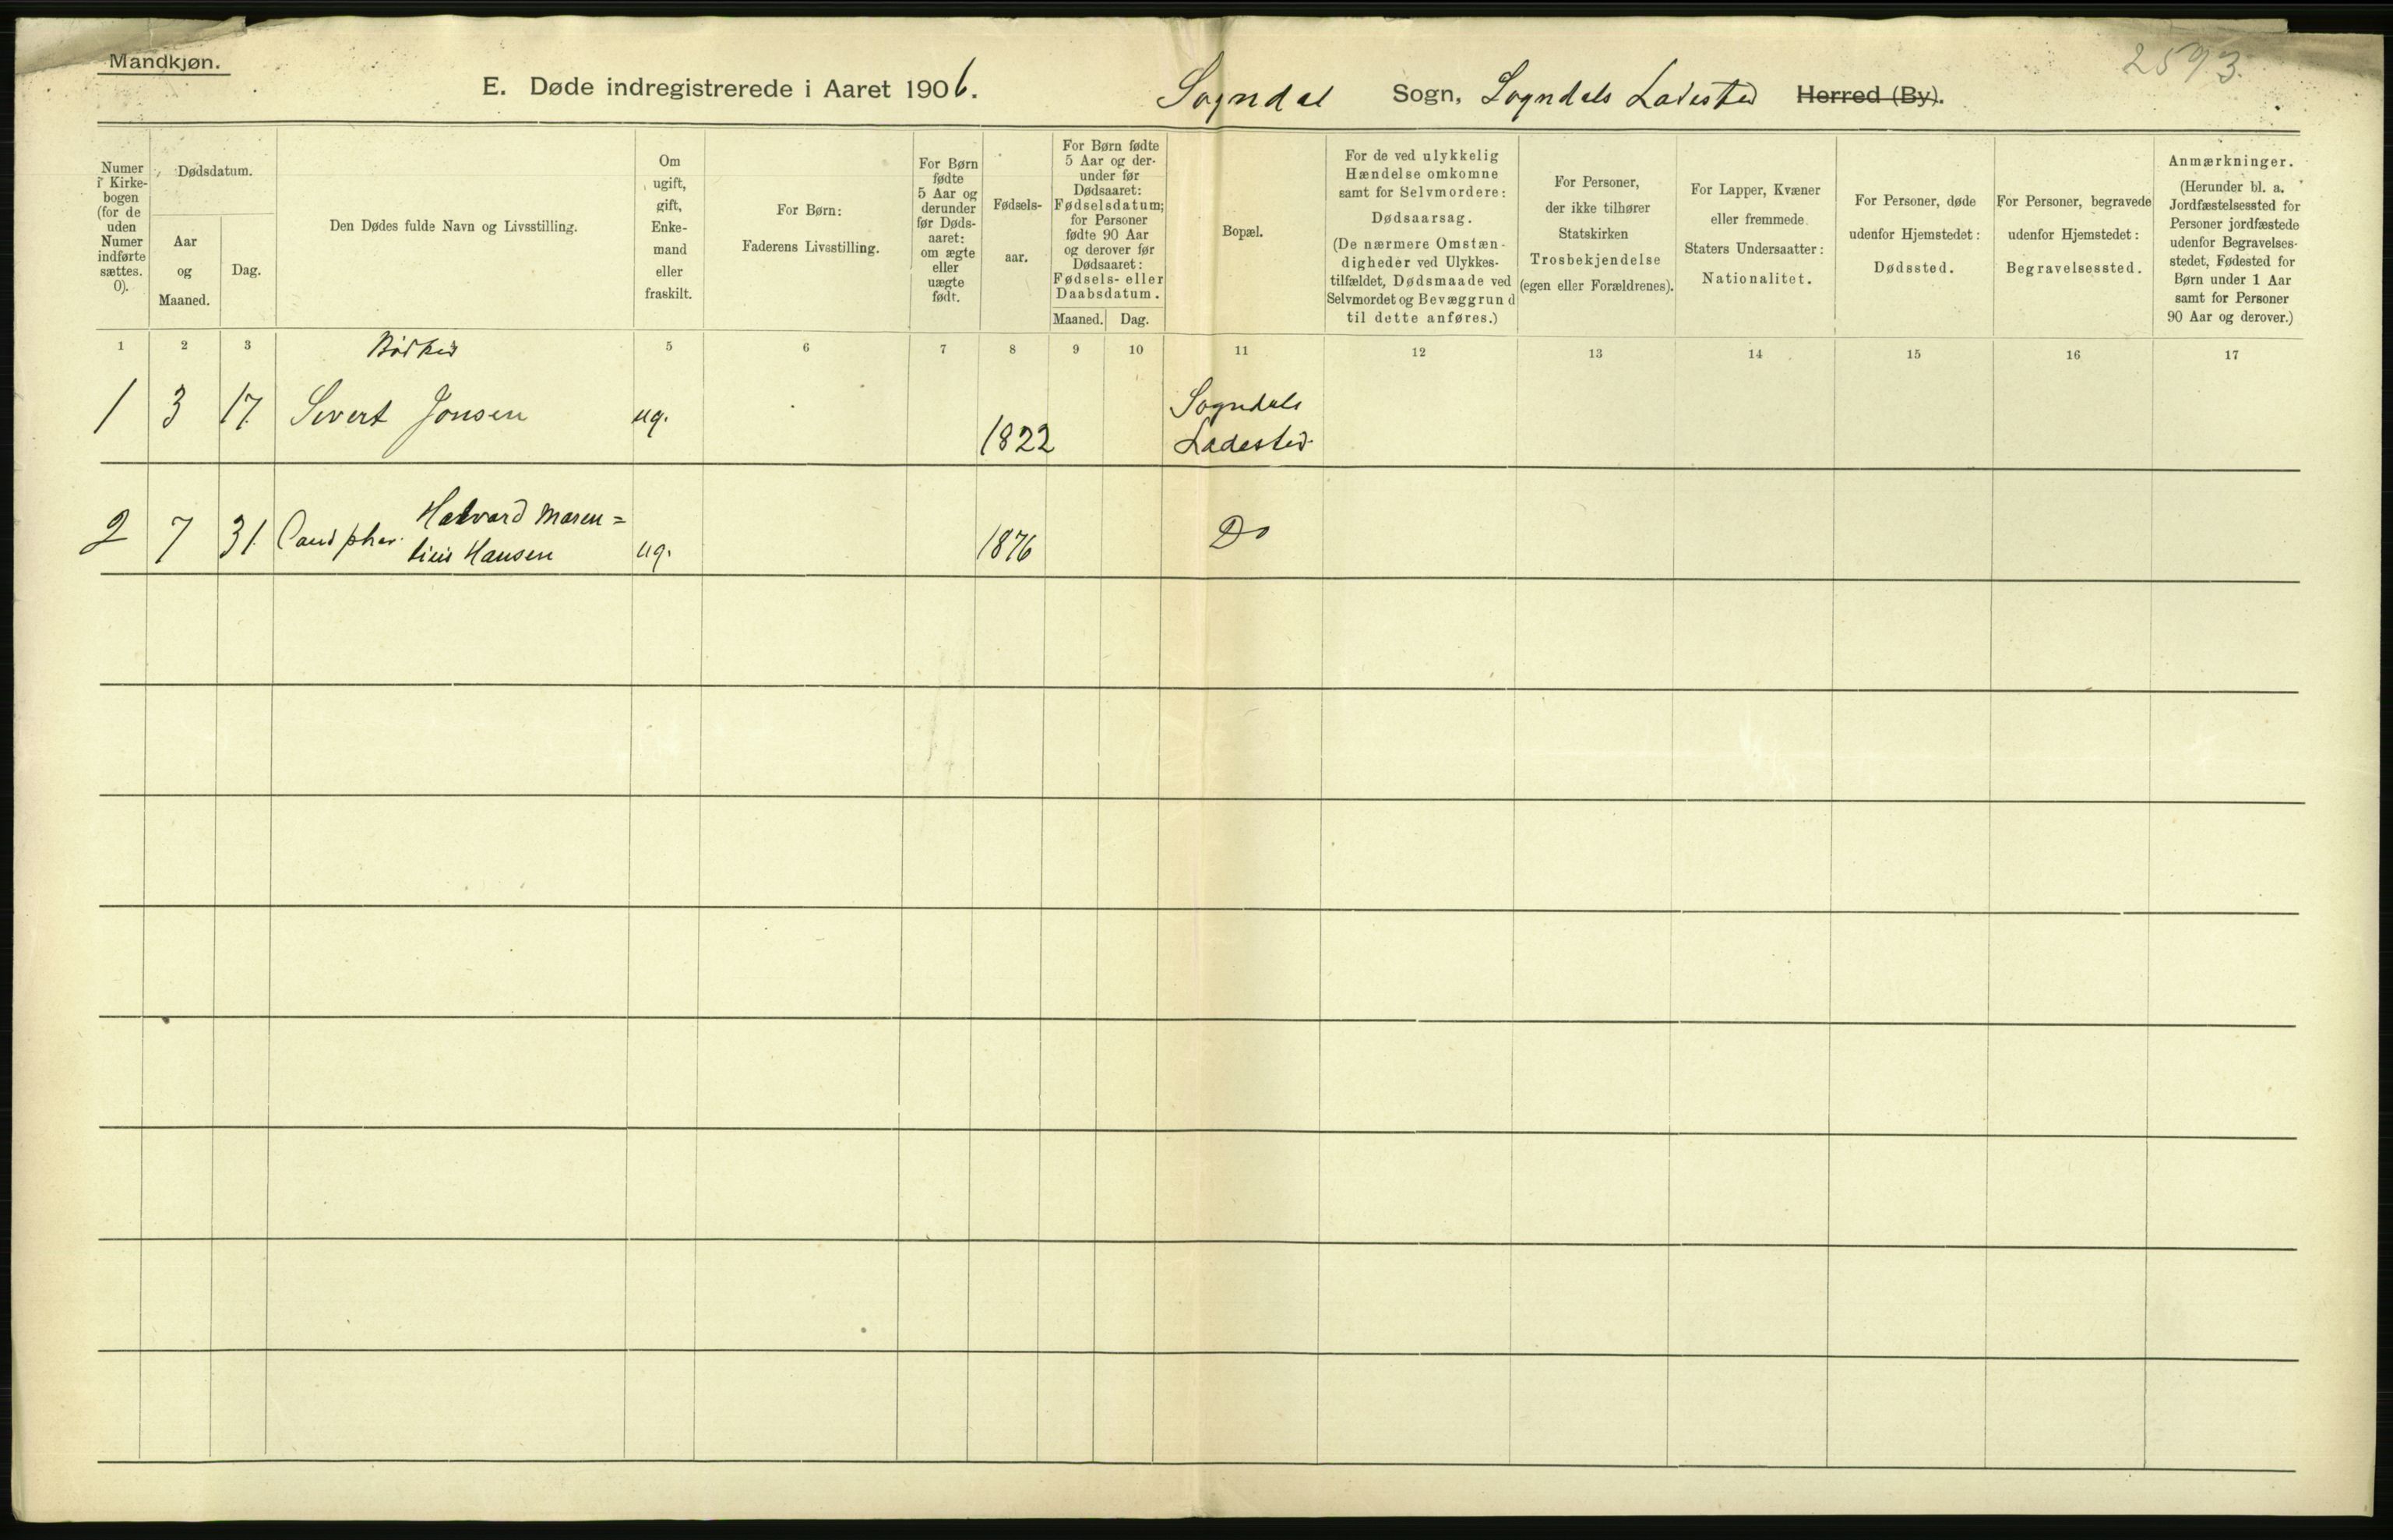 Mandkjøn.
2593.
E. Døde indregistrerede i Aaret 1906.
Sogndal Sogn, Sogndals Ladested Herred (By).
Numer
i Kirke-
bogen
(for de
uden
Numer
indførte
sættes.
0).
Dødsdatum.
Aar
og
Maaned.
Dag.
Den Dødes fulde Navn og Livsstilling.
Om
ugift,
gift,
Enke-
mand
eller
fraskilt.
For Børn:
Faderens Livsstilling.
For Børn
fødte
5 Aar og
derunder
før Døds-
aaret:
om ægte
eller
uægte
født.
Fødsels-
aar.
For Børn fødte
5 Aar og der-
under før
Dødsaaret:
Fødselsdatum;
for Personer
fødte 90 Aar
og derover før
Dødsaaret:
Fødsels- eller
Daabsdatum.
Maaned. Dag.
Bopæl.
For de ved ulykkelig
Hændelse omkomne
samt for Selvmordere:
Dødsaarsag.
(De nærmere Omstæn-
digheder ved Ulykkes-
tilfældet, Dødsmaade ved
Selvmordet og Bevæggrund
til dette anføres.)
For Personer,
der ikke tilhører
Statskirken
Trosbekjendelse
(egen eller Forældrenes).
For Lapper, Kvæner
eller fremmede
Staters Undersaatter:
Nationalitet.
For Personer, døde
udenfor Hjemstedet:
Dødssted.
For Personer, begravede
udenfor Hjemstedet:
Begravelsessted.
Anmærkninger.
(Herunder bl. a.
Jordfæstelsessted for
Personer jordfæstede
udenfor Begravelses-
stedet, Fødested for
Børn under 1 Aar
samt for Personer
90 Aar og derover.)
1 2 3 5 6 7 8 9 10 11 12 13 14 15 16 17
1 3 17. Sivert Jonsen ug. 1822 Sogndals
Ladested
2 7 31. Cand phar. Halvard Maren=
tius Hansen ug. 1876 Do